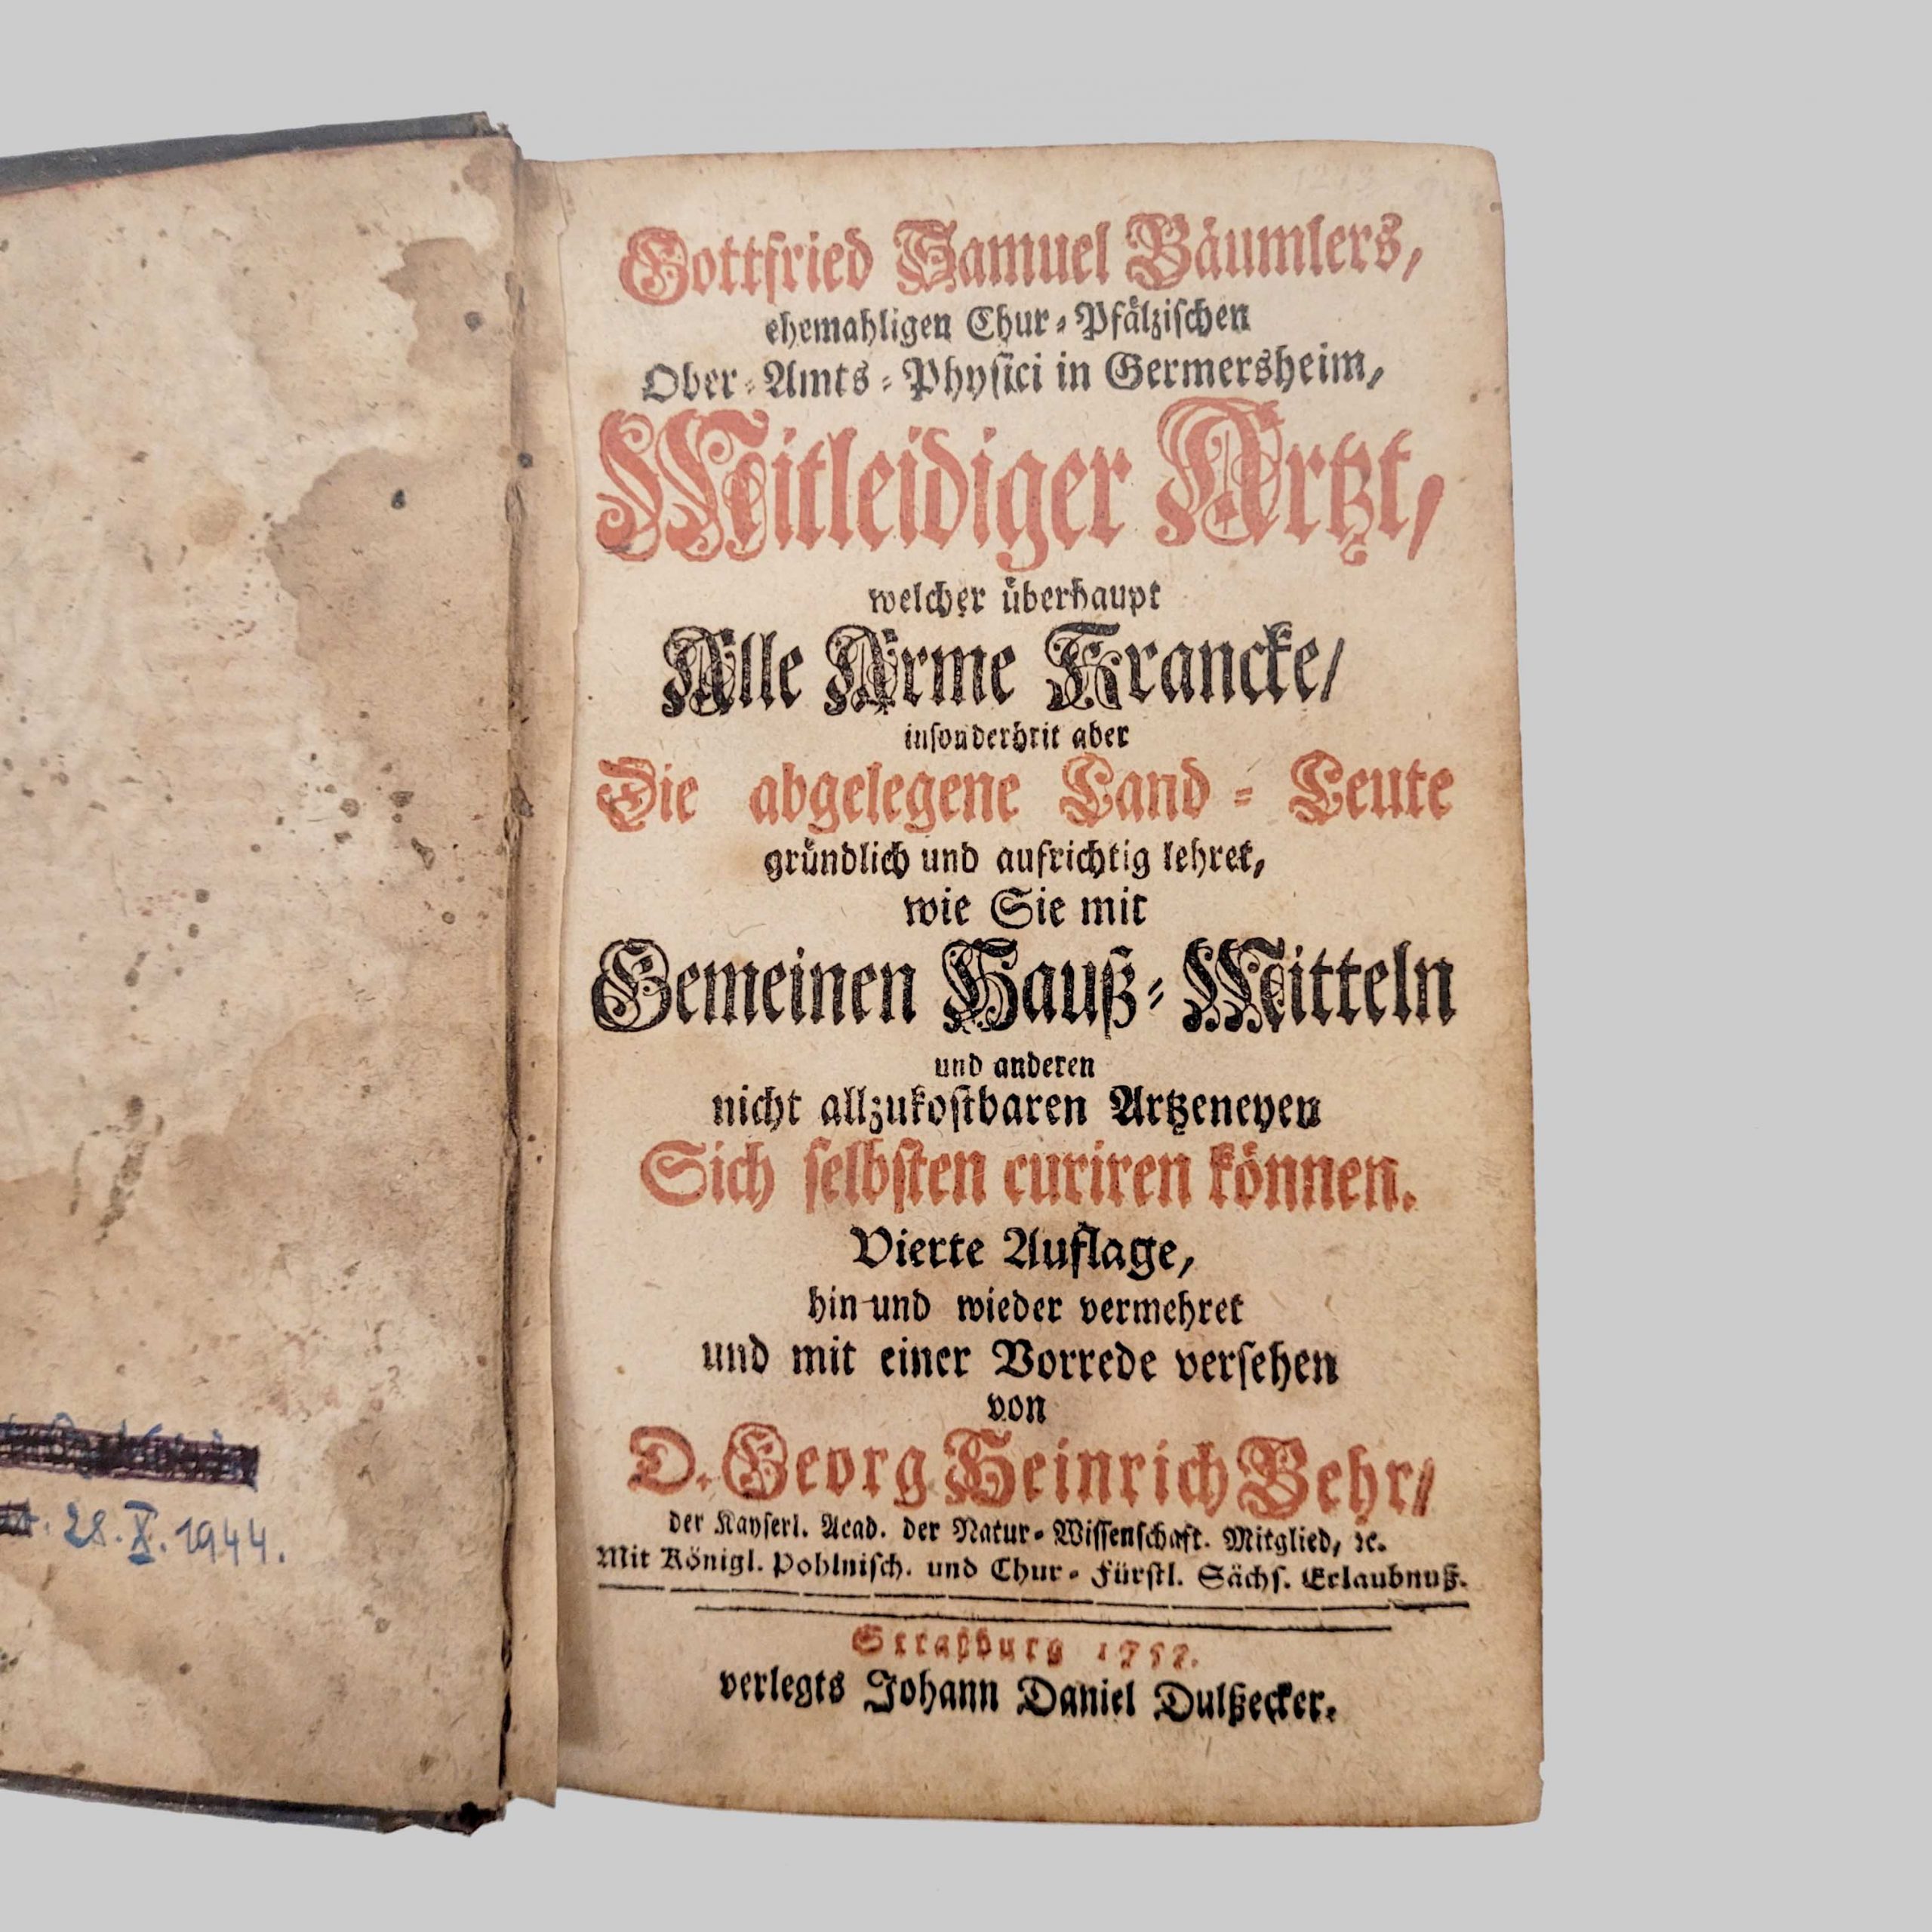 28. X. 1944.
Gottfried Samuel Bäumlers,
ehemahligen Chur-Pfältzischen
Ober-Amts-Physici in Germersheim,
Mitleidiger Artzt,
welcher überhaupt
Alle Arme Krancke/
insonderheit aber
Die abgelegene Land-Leute
gründlich und aufrichtig lehret,
wie Sie mit
Gemeinen Hauß-Mitteln
und anderen
nicht allzukostbaren Artzeneyen
Sich selbsten curiren können.
Vierte Auflage,
hin und wieder vermehret
und mit einer Vorrede versehen
von
D. Georg Heinrich Behr/
der Kayserl. Acad. der Natur-Wissenschaft. Mitglied, ꝛc.
Mit Königl. Pohlnisch. und Chur-Fürstl. Sächs. Erlaubnuß.
Straßburg
verlegts Johann Daniel Dulßecker.